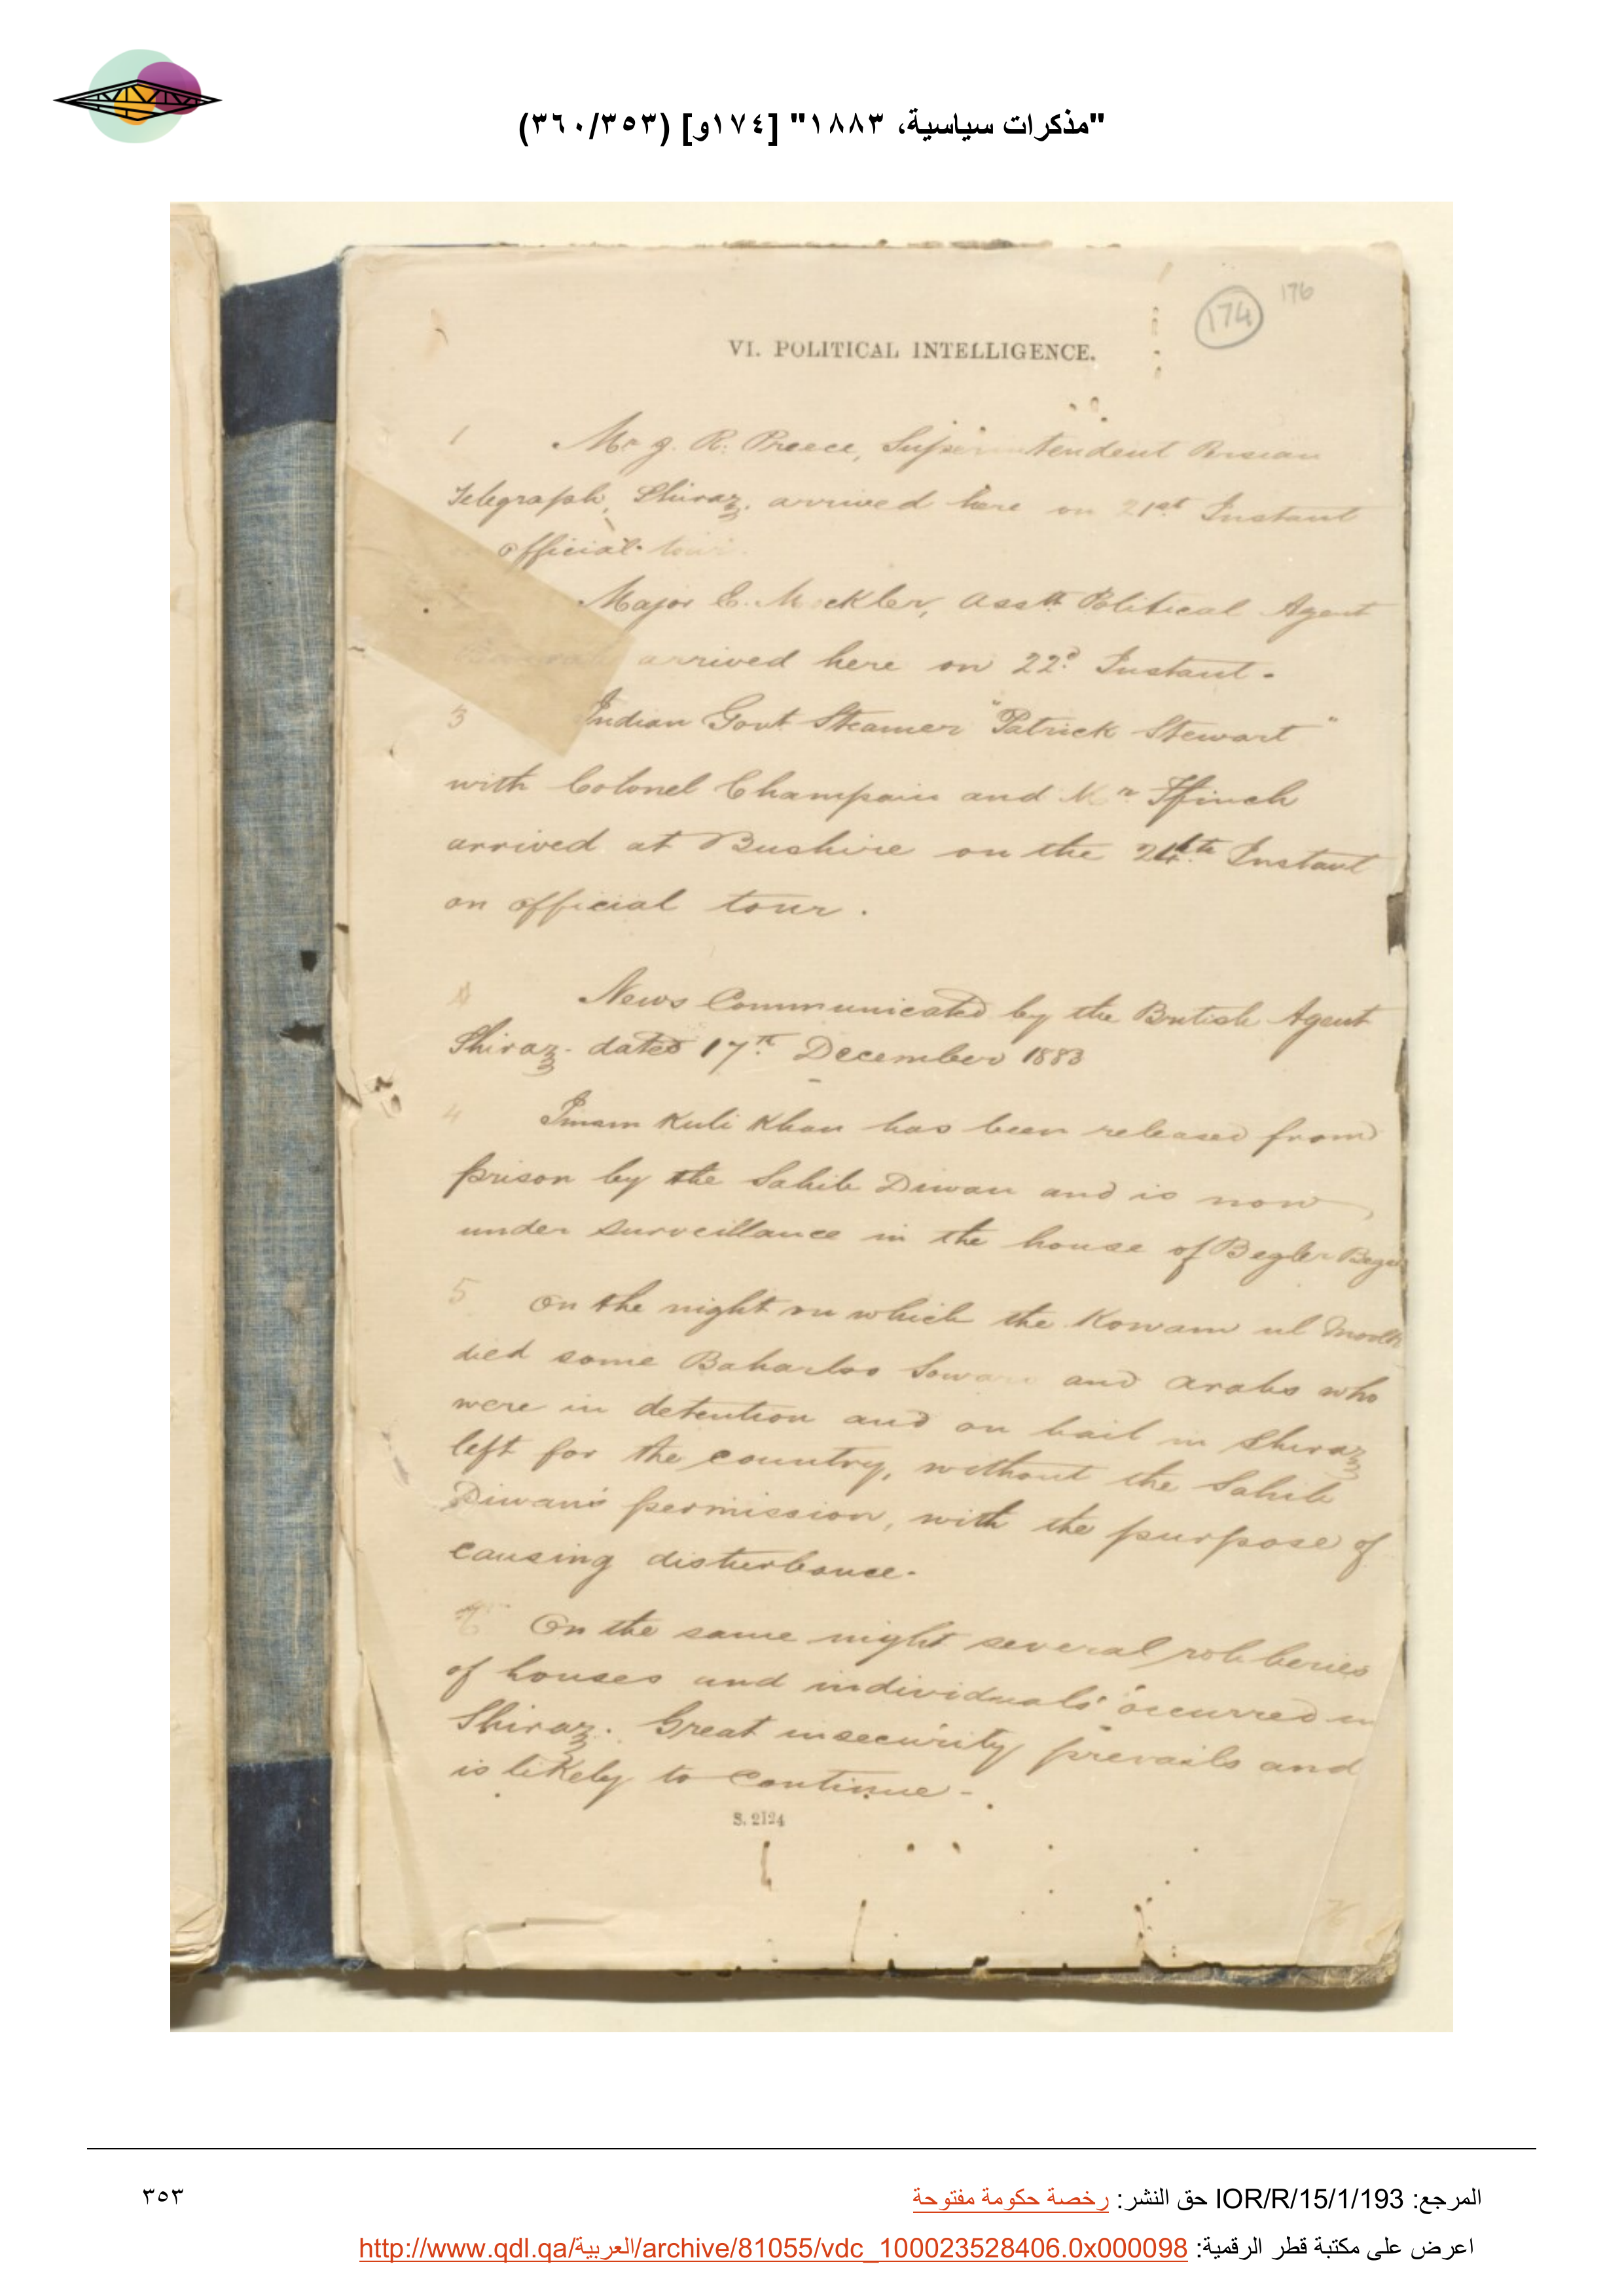 "مذكرات سياسية، ١٨٨٣" [١٧٤و] (٣٦٠/٣٥٣)
174 176
VI. POLITICAL INTELLIGENCE.
1 Mr J. R. Preece, Superintendent Persian
Telegraph, Shiraz, arrived here on 21st Instant
official tour.
Major E. Mockler, Asstt Political Agent
arrived here on 22d Instant.
3 Indian Govt Steamer "Patrick Stewart"
with Colonel Champain and Mr Ffinch
arrived at Bushire on the 24th Instant
on official tour.
News Communicated by the British Agent
Shiraz. dated 17th December 1883
4 Imam Kuli Khan has been released from
prison by the Sahib Diwan and is now
under surveillance in the house of Begler Begi
5 On the night on which the Kowam ul Moolk
died some Baharloo Sowars and Arabs who
were in detention and on bail in Shiraz
left for the country, without the Sahib
Diwan's permission, with the purpose of
causing disturbance.
6 On the same night several robberies
of houses and individuals occurred in
Shiraz. Great insecurity prevails and
is likely to continue.
S. 2124
المرجع: IOR/R/15/1/193 حق النشر: رخصة حكومة مفتوحة
٣٥٣
اعرض على مكتبة قطر الرقمية: http://www.qdl.qa/العربية/archive/81055/vdc_100023528406.0x000098